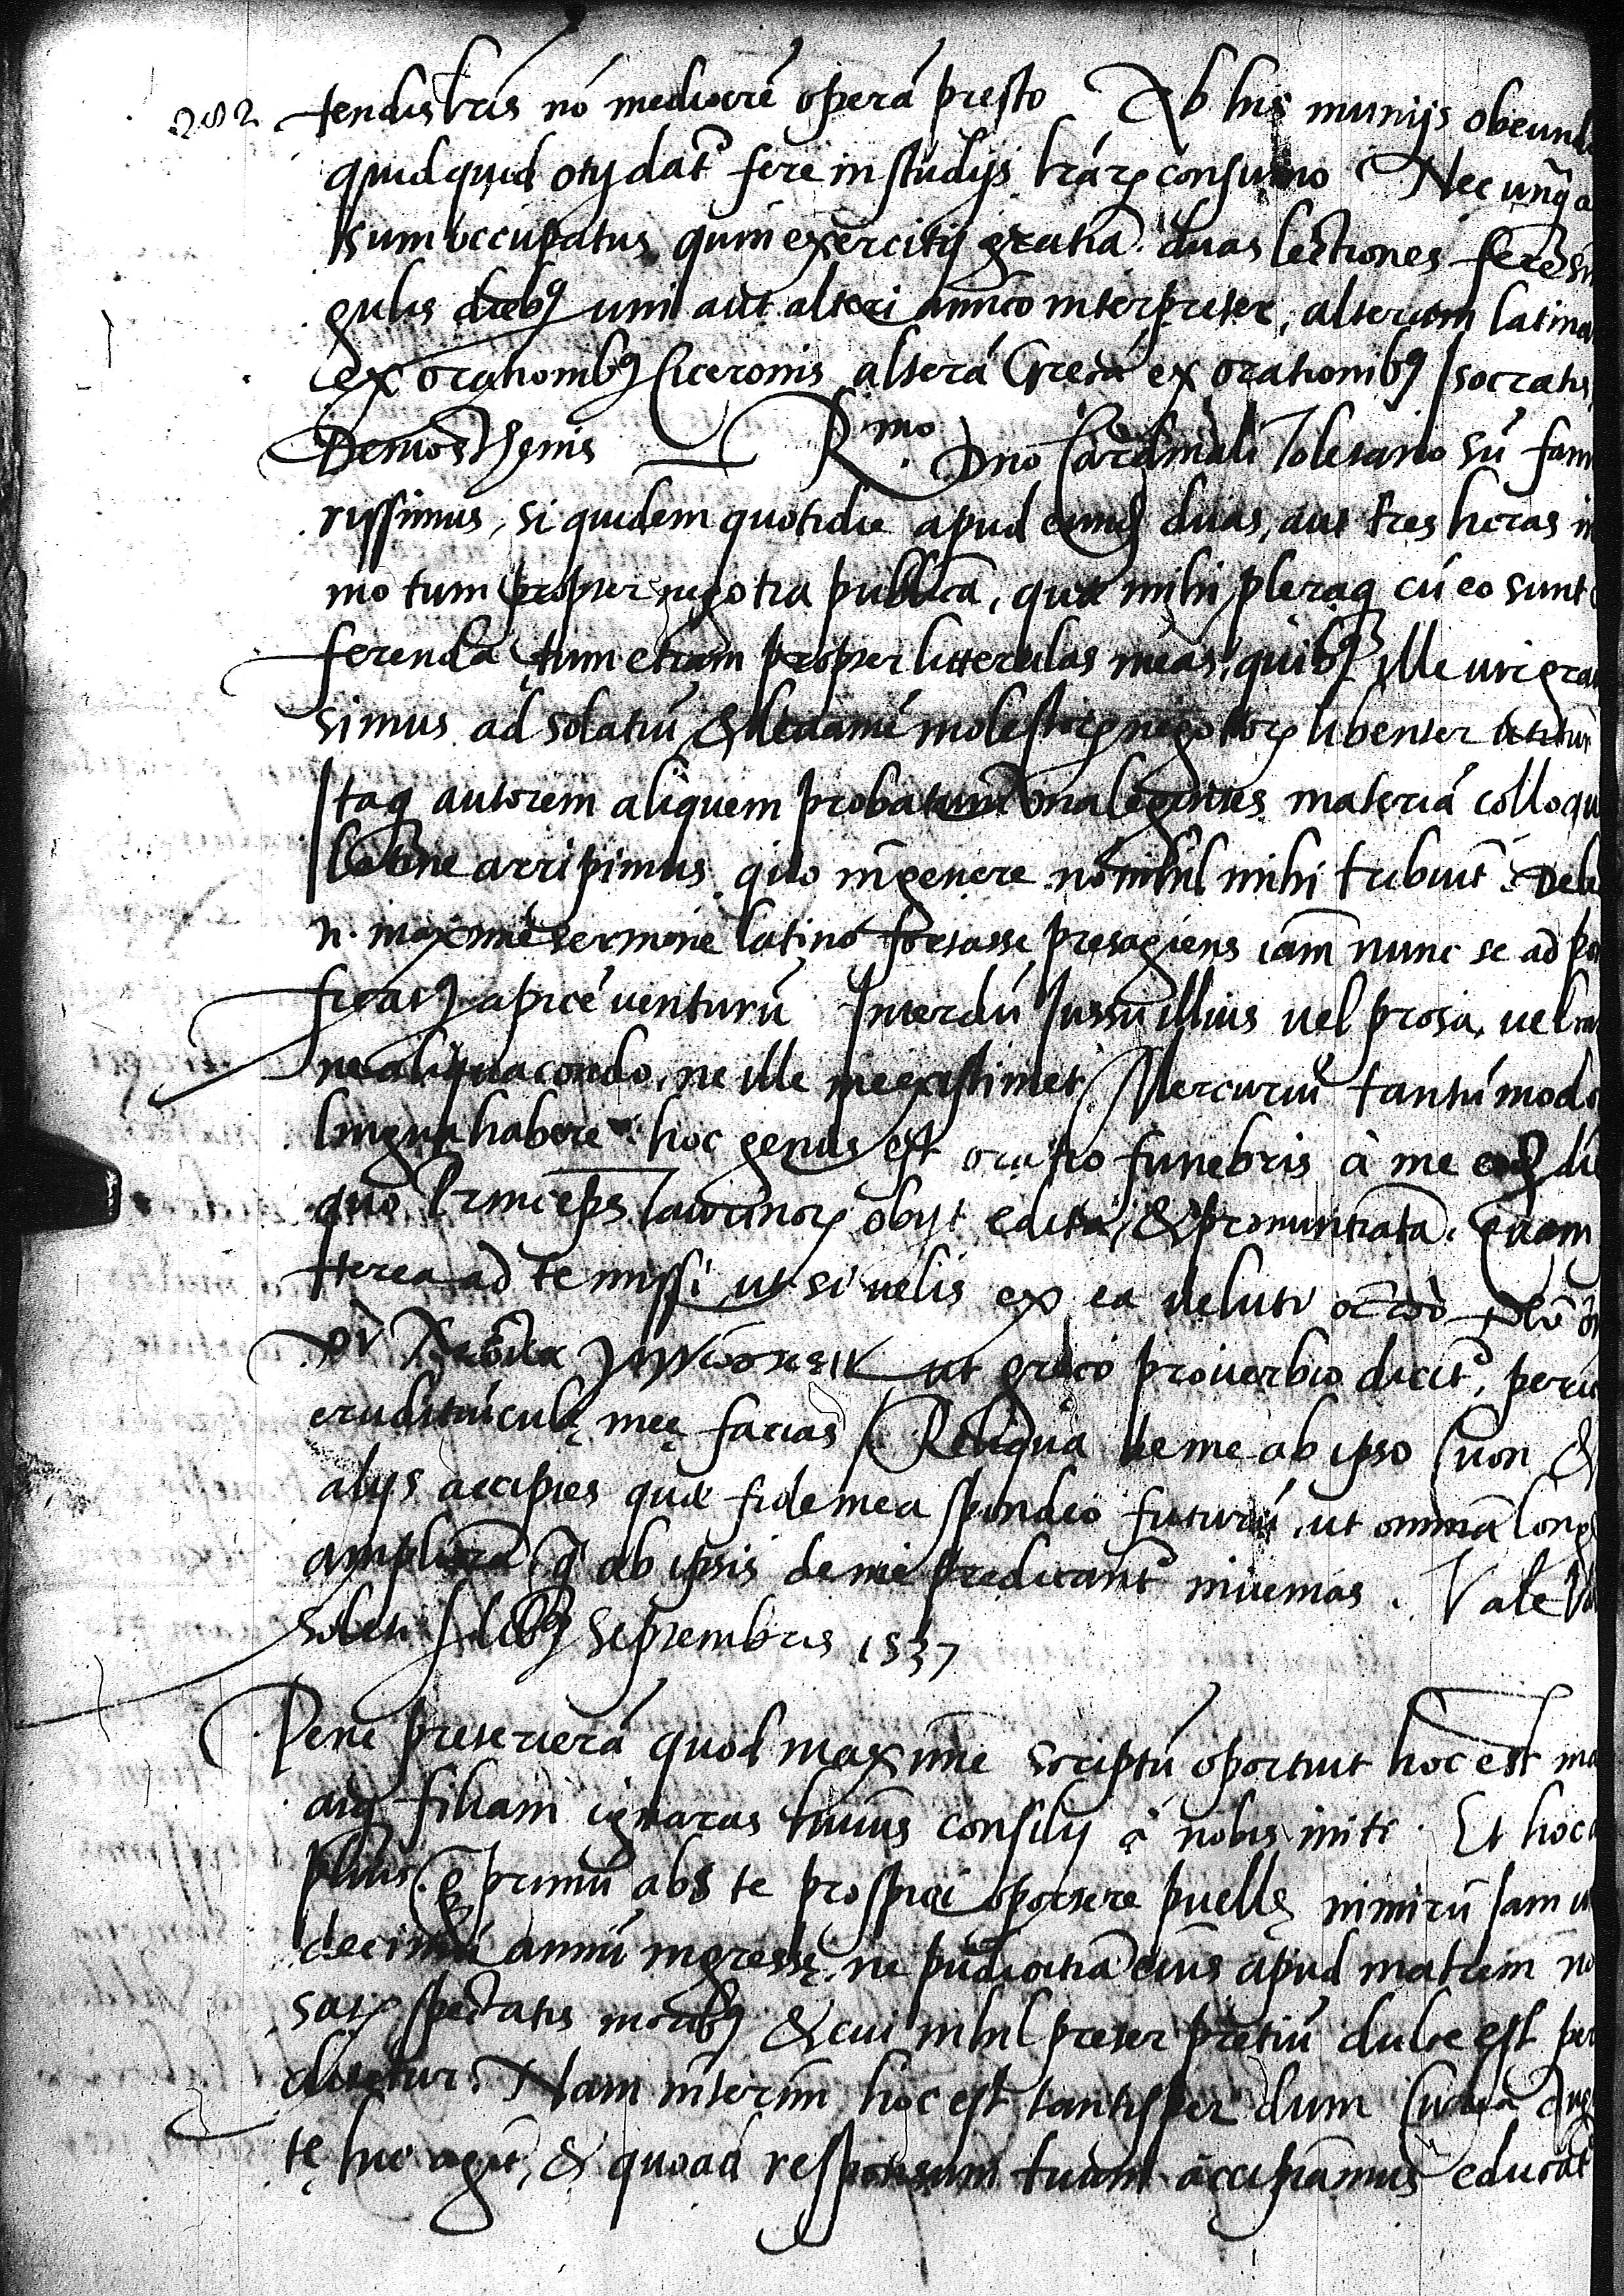 282
tendis lr̃is nõ mediocrẽ operã presto Ab his munijs obeund
quidquid otij dat̃ fere in studijs lr̃aꝝ consumo Nec unq̃ a
sum occupatus quin exercitij gratia duas lectiones fere sin
gulis diebꝰ uni aut alteri amico interpreter, alteram latina
ex orationibꝰ Ciceronis alterã Grecã ex orationibꝰ Isocratis,
Demosthenis R.mo Dño Cardinali Toletano sũ fam
rissimus, si quidem quotidie apud eum duas, aut tres horas
mo tum propter negotia publica, quæ mihi pleraq cũ eo sunt
ferenda tum etiam propter litterulas meas, quibꝰ ille vir gra
simus ad solatiũ & leuamẽ molestoꝝ negotioꝝ libenter utitur
Itaq autorem aliquem probatum una legentes materiã colloqu
latine arripimus quo in genere nõnihil mihi tribuit. Dele
n. maxime sermone latino fortasse presagiens iam nunc se ad po
ficatꝰ apicẽ venturũ Interdũ Iussu illius vel prosa, vel
ne aliqua condo, ne ille me existimet Mercuriũ tantũ modo
lingua habere hoc genus est oratio funebris à me eo die
quo Princeps Taurinoꝝ obijt edita, & pronuntiata. Quam
tterea ad te missi ut si velis ex ea veluti
ut greco prouerbio dicit̃, peric
eruditiũculę meę facias Reliqua de me ab ipso Cuon &
alijs accipies quæ fide mea spondeo futurũ, ut omnia long
ampliora q̃ ab ipsis de me predicant̃ inuenias. Vale
soleti Idibꝰ Septembris 1537
Pene preterierã quod maxime scriptũ oportuit hoc est ma
atq filiam ignaras huius consilij à nobis initi. Et hoc
plius q̃ primũ abs te prospici oportere puellę nimirũ Iam
decimũ annũ ingressę ne pudicitia eius apud matrem no
satꝭ spectatis moribꝰ & cui nihil preter pretiũ dulce est per
clitetur. Nam interim hoc est tantisper dum
te huc agit, & quoad responsum tuum accipiamus educat̃